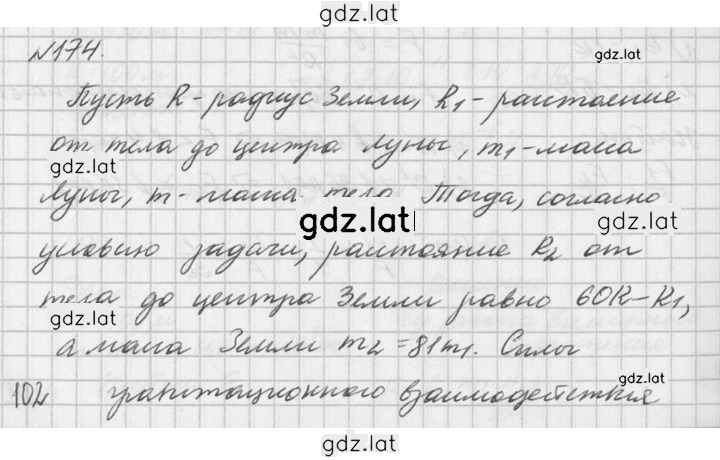 gdz.lat
№174.
gdz.lat
Пусть R - радиус Земли, R1 - расстояние
от тела до центра Луны, m1 - масса
gdz.lat
Луны, m - масса тела. Тогда, согласно
gdz.lat
условию задачи, расстояние R2 от
тела до центра Земли равно 60R-R1,
gdz.lat
а масса Земли m2 = 81m1. Силы
gdz.lat
102 гравитационного взаимодействия
gdz.lat